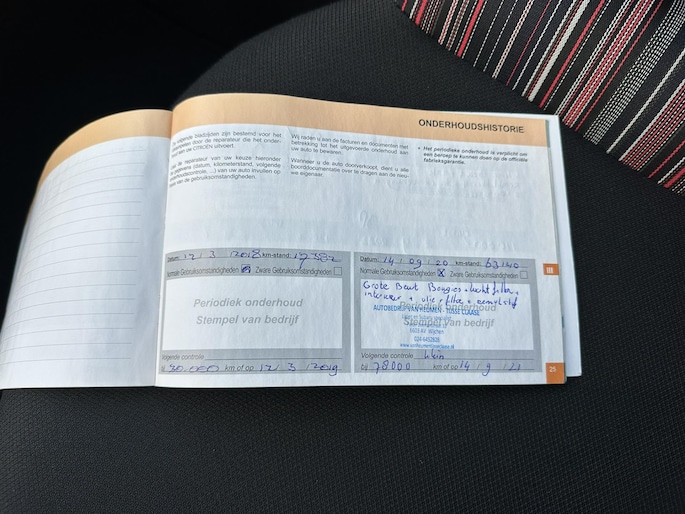 ONDERHOUDSHISTORIE
De volgende bladzijden zijn bestemd voor het
door de reparateur die het onder-
CITROËN uitvoert.
reparateur van uw keuze hieronder
gegevens (datum, kilometerstand, volgende
onderhoudscontrole, ...) van uw auto invullen op
van de gebruiksomstandigheden.
Wij raden u aan de facturen en documenten met
betrekking tot het uitgevoerde onderhoud aan
uw auto te bewaren.
Wanneer u de auto doorverkoopt, dient u alle
boorddocumentatie over te dragen aan de nieu-
we eigenaar.
• Het periodieke onderhoud is verplicht om
een beroep te kunnen doen op de officiële
fabrieksgarantie.
Datum: 12 / 3 / 2018 km-stand:
Normale Gebruiksomstandigheden Zware Gebruiksomstandigheden
Periodiek onderhoud
Stempel van bedrijf
Volgende controle
30.000 km of op 12 / 3 / 2019
Datum: 14 / 09 / 20 km-stand: 63140
Normale Gebruiksomstandigheden X Zware Gebruiksomstandigheden
Grote Beurt Bougies + luchtfilter +
interieur + olie + filter +
Periodiek onderhoud
AUTOBEDRIJF VAN KEUMEN - TOSSE CLAASE
Stempel van bedrijf
Wijchen
024-6452828
Volgende controle
bij 78000 km of op 14 / 9 / 21
III
25